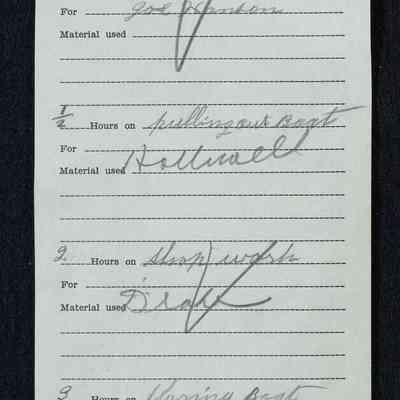 For Joe Johnson
Material used
1/2 Hours on pulling out Boat
For
Material used Holliwell
2 Hours on shop work
For
Material used Drake
Hours on Boat